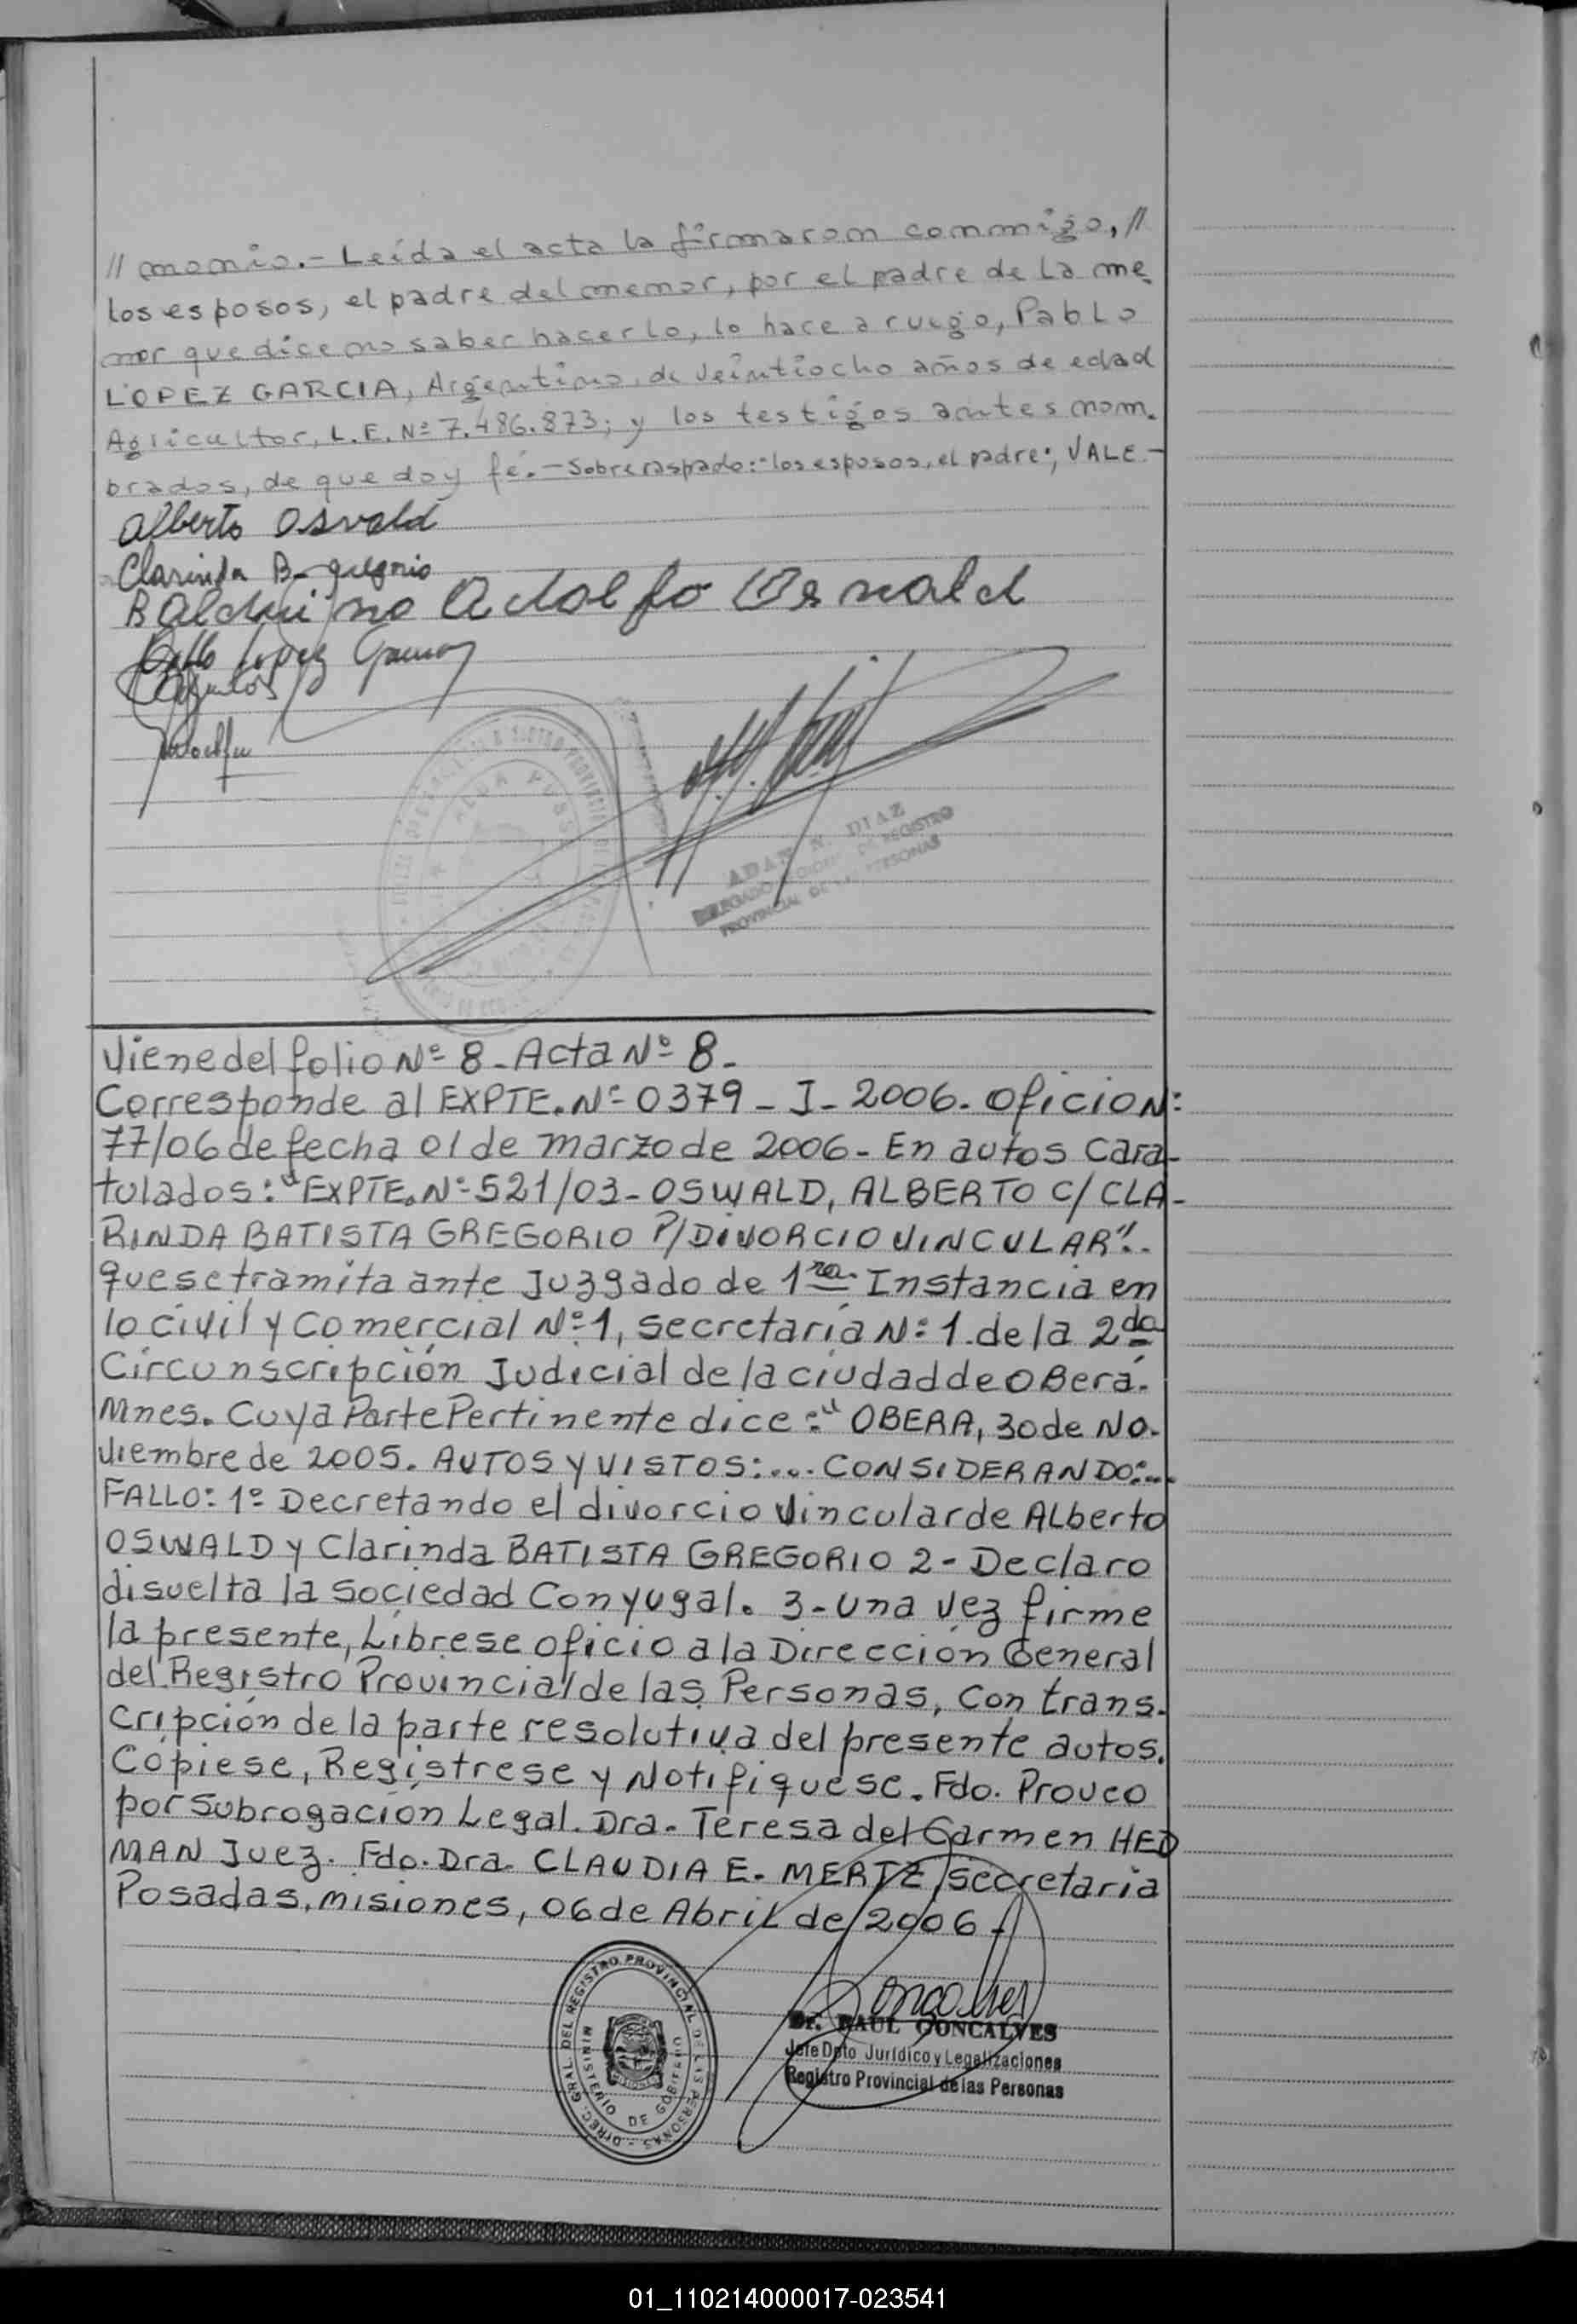 // monio.- Leída el acta la firmaron conmigo, //
los esposos, el padre del menor, por el padre de la me-
nor que dice no saber hacerlo, lo hace a ruego, Pablo
LOPEZ GARCIA, Argentino, de veintiocho años de edad
Agricultor, L.E. Nº 7.486.873; y los testigos antes nom-
brados, de que doy fé.- Sobreraspado: "los esposos, el padre", VALE.-
Alberto Osvald
Clarinda B. gregorio
Balduino Adolfo Oswald
Pablo Lopez Garcia
ADAN N. DIAZ
DELEGADO DE REGISTRO
PROVINCIAL DE LAS PERSONAS
Viene del folio Nº 8 - Acta Nº 8 -
Corresponde al EXPTE. Nº 0379 - J - 2006. Oficio Nº
77/06 de fecha 01 de marzo de 2006 - En autos Cara-
tulados: "EXPTE. Nº 521/03 - OSWALD, ALBERTO C/ CLA-
RINDA BATISTA GREGORIO P/ DIVORCIO VINCULAR".-
que se tramita ante Juzgado de 1ra. Instancia en
lo civil y Comercial Nº 1, secretaría Nº 1 de la 2da
Circunscripción Judicial de la ciudad de Oberá.
Mnes. Cuya Parte Pertinente dice: "OBERA, 30 de No-
viembre de 2005. AUTOS y VISTOS:... CONSIDERANDO:...
FALLO: 1º Decretando el divorcio Vincular de Alberto
OSWALD y Clarinda BATISTA GREGORIO 2 - Declaro
disuelta la Sociedad Conyugal. 3 - Una vez firme
la presente, Librese oficio a la Dirección General
del Registro Provincial de las Personas, con trans-
cripción de la parte resolutiva del presente autos.
Cópiese, Regístrese y Notifiquese. Fdo. Proveo
por Subrogación Legal. Dra. Teresa del Carmen HED
MAN Juez. Fdo. Dra. CLAUDIA E. MERTZ secretaria
Posadas, misiones, 06 de Abril de 2006 -
DIREC. GRAL. DEL REGISTRO PROVINCIAL DE LAS PERSONAS -
MINISTERIO DE GOBIERNO
Dr. RAUL GONCALVES
Jefe Dpto Jurídico y Legalizaciones
Registro Provincial de las Personas
01_110214000017-023541